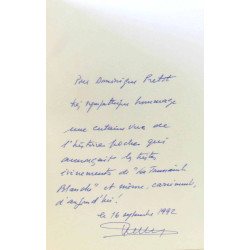 Pour Dominique Pretot
très sympathique hommage
une certaine vue de
l'histoire qui
annonçait les tristes
évènements de "la
Blanche" et même, carrément,
d'aujourd'hui!
le 16 septembre 1992